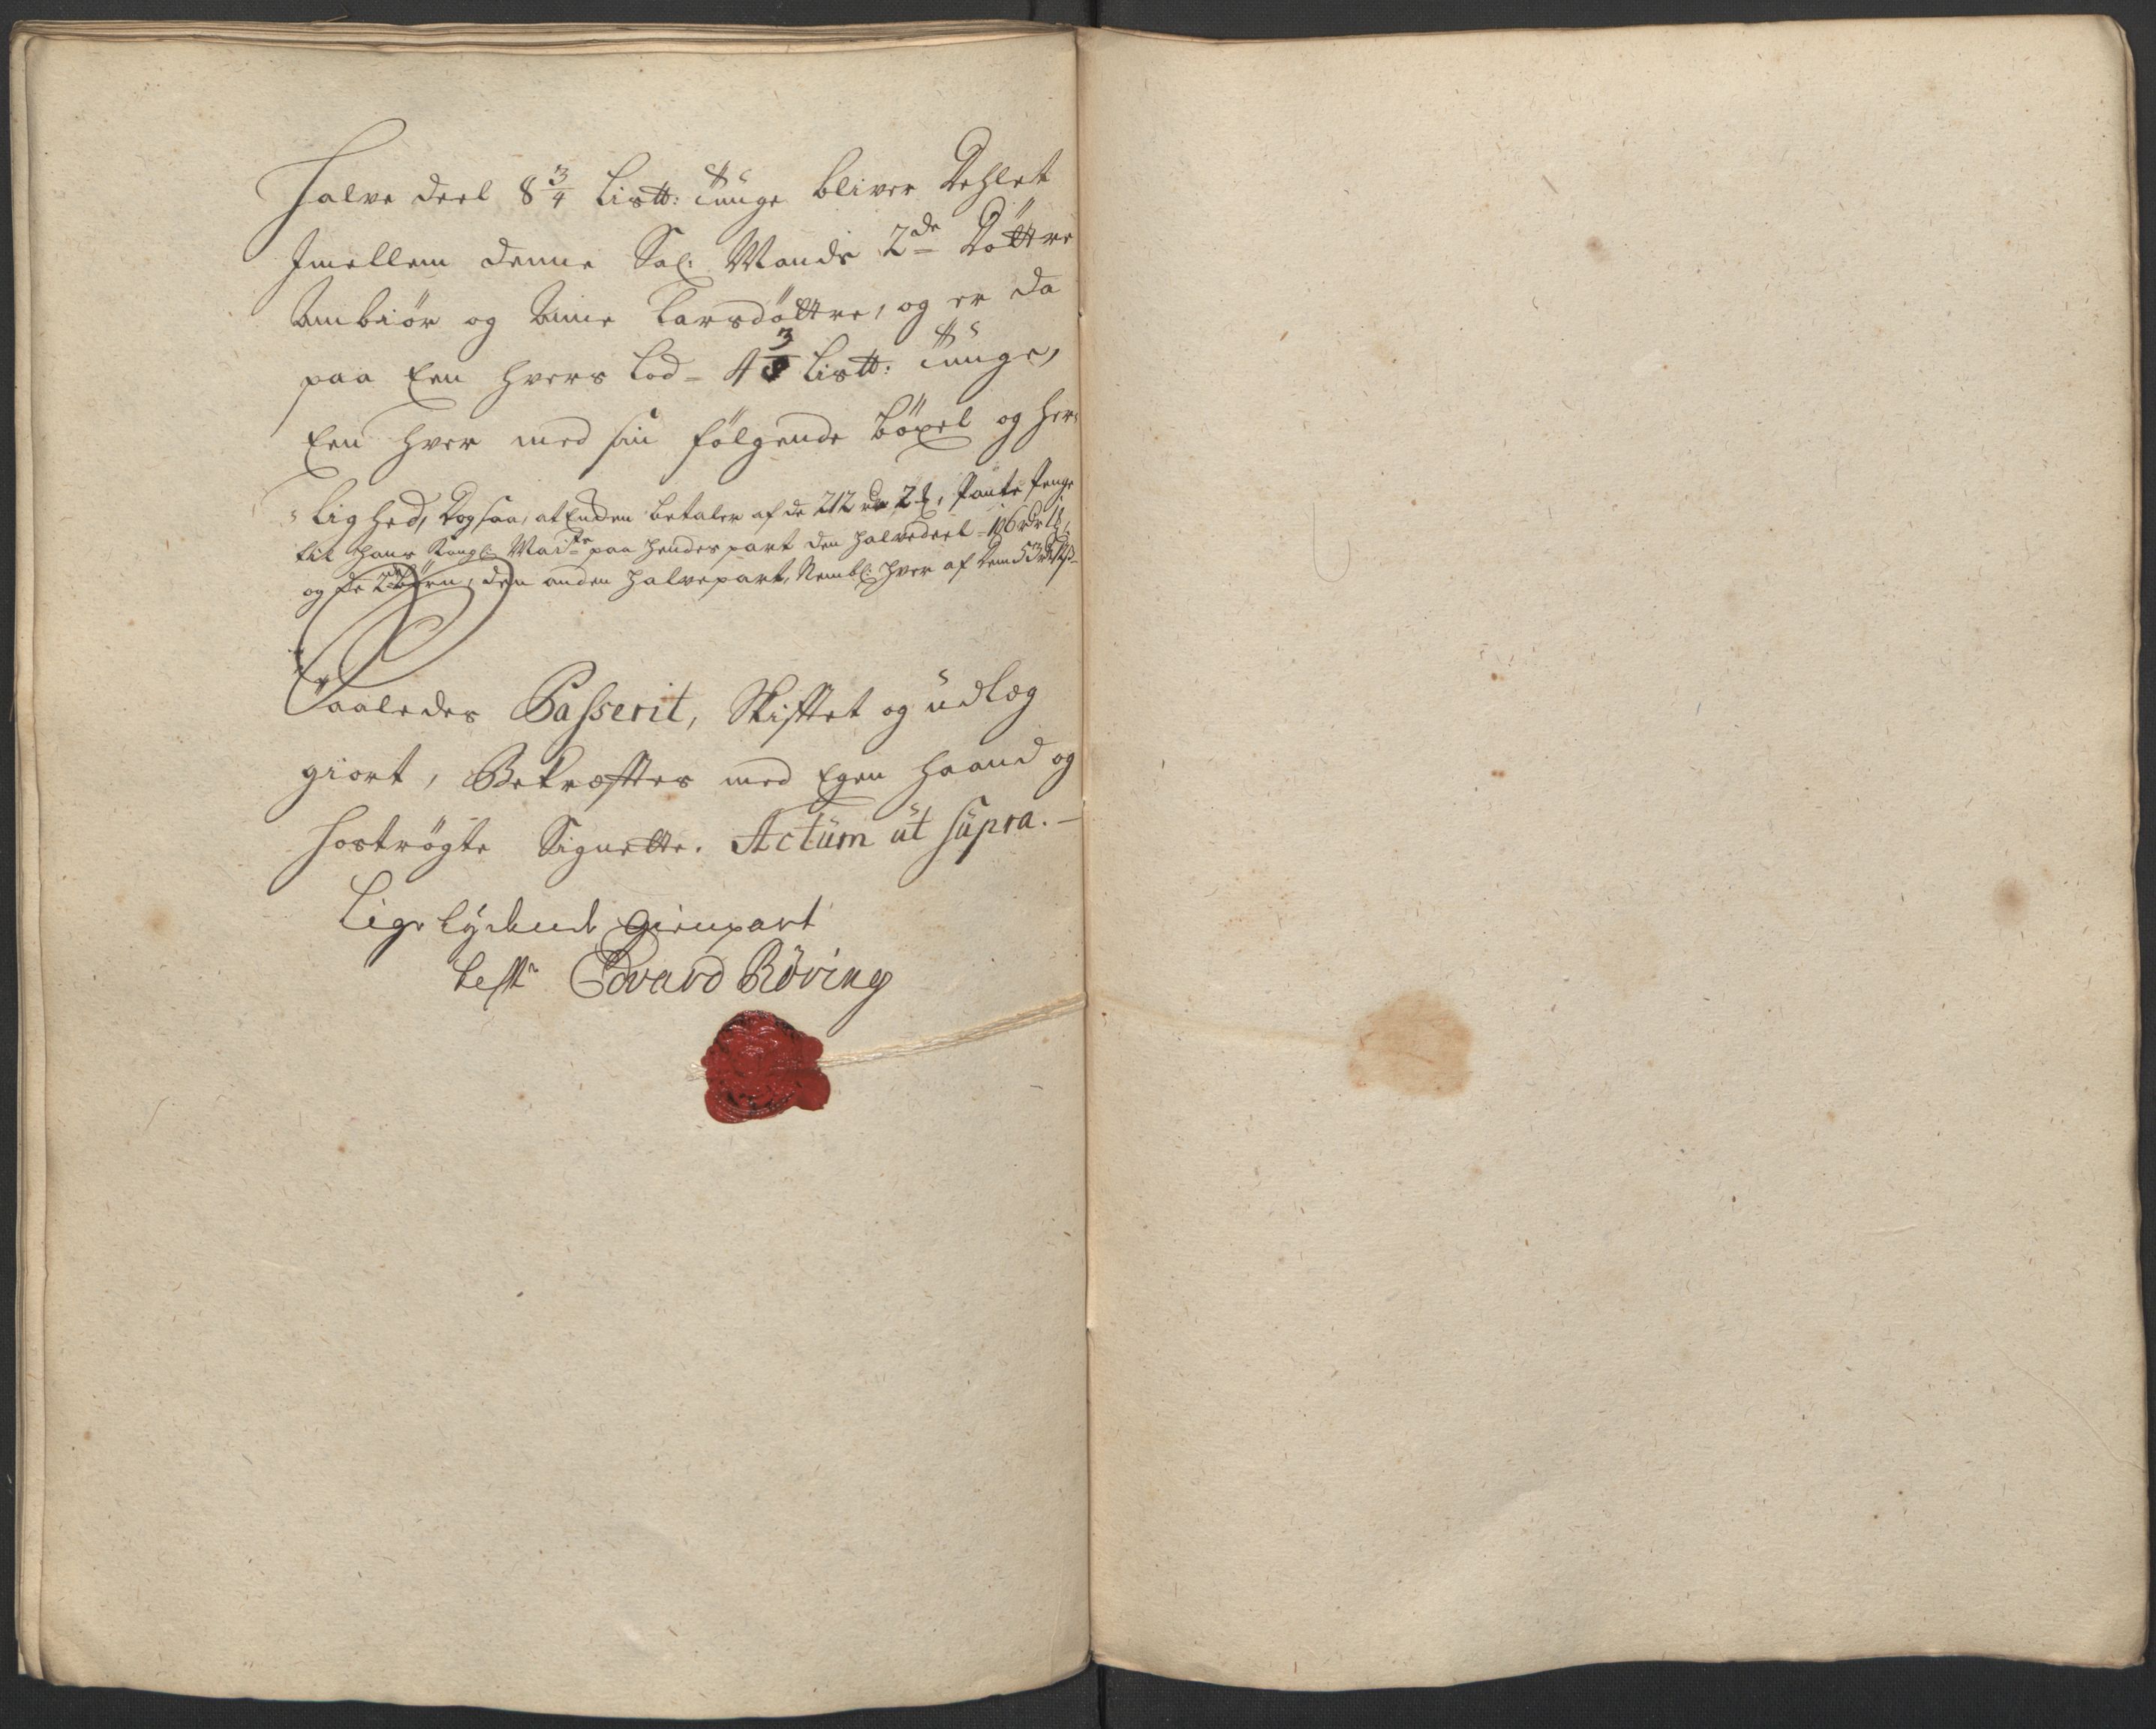 Halve deel 8 3/4 Lis℔: Tunge bliver Dehlet
Jmellem denne Sal: Mands 2de Döttre
Anbiör og Anne Larsdöttre, og er da
paa Een hvers Lod = 4 3/8 Lis℔: Tunge,
Een hver med sin følgende böxel og her-
lighed, Dog saa, at Enchen betaler af de 212 rdr 2 ß, Pante Penge
til Hans Kongl: Maits paa hendes part den halvedeel = 106 rdr 1 ß,
og de 2de börn, den anden halvepart, Nembl: hver af dem 53 rdr
Saaledes Passerit, Skifftet og udlæg
giort, Bekræfftes med Egen haand og
hoströgte Signette. Actum ut supra. —
Lige lydende gienpart
test: Edvard Röring